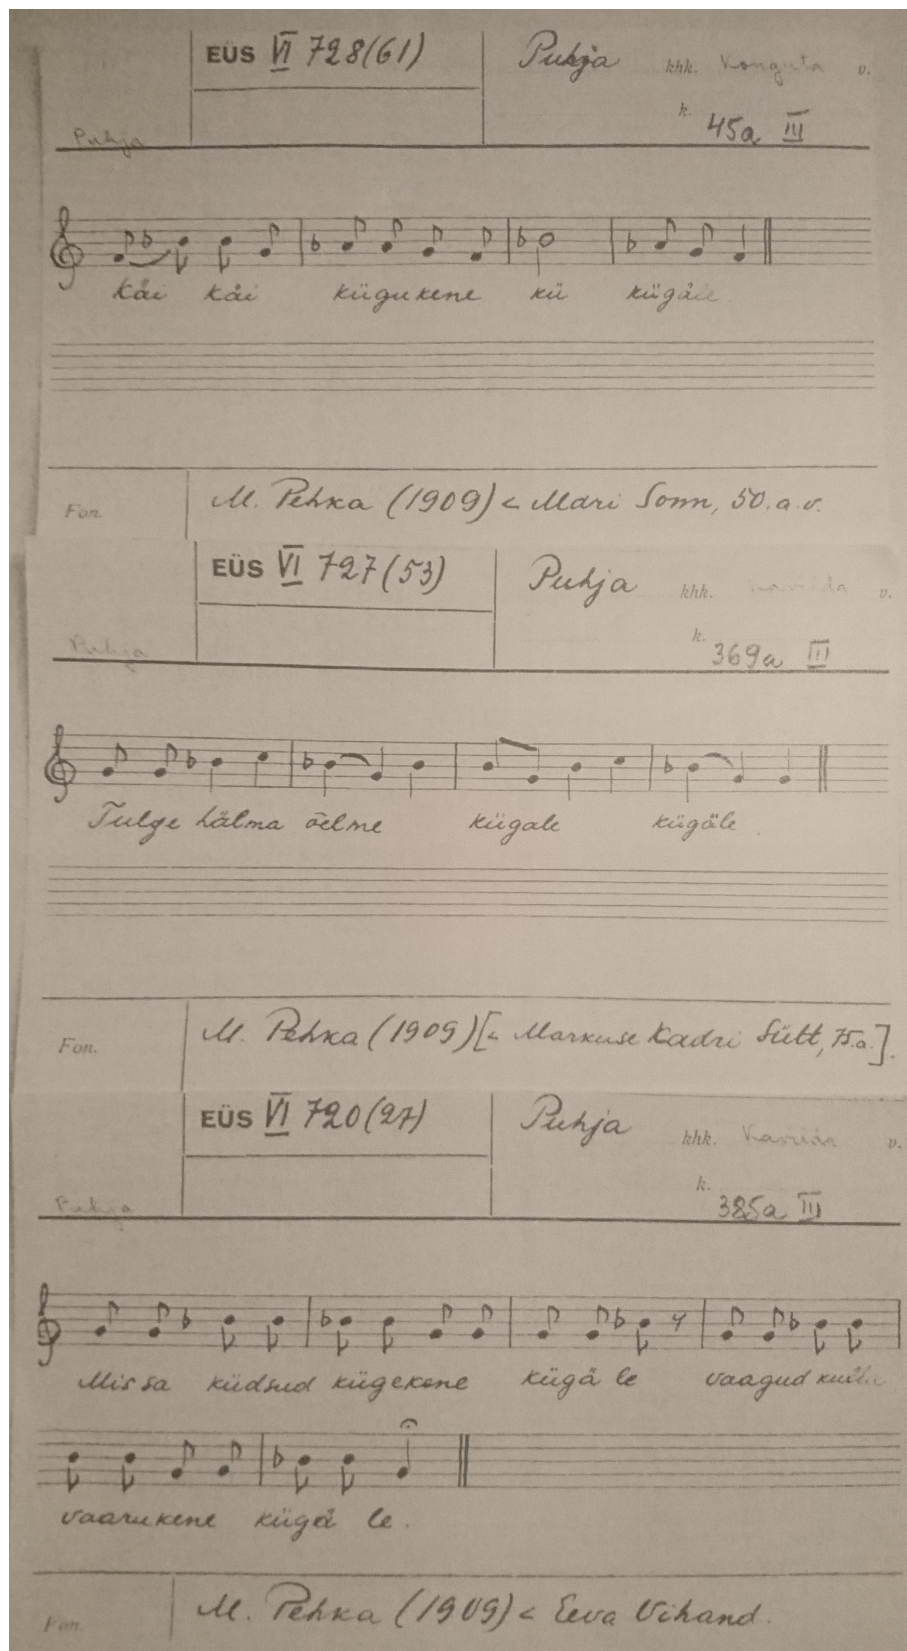 EÜS VI 728(61) Puhja khk. Konguta v.
k.
Puhja 45a III
Käi käi kügukene kü kügäle
Fon. M. Pehka (1909) < Mari Sonn, 50.a.v.
EÜS VI 727(53) Puhja khk. v.
k.
Puhja 369a III
Tulge hälma õelme kügale kügäle.
Fon. M. Pehka (1909) [< Markuse Kadri Sütt, 75.a.].
EÜS VI 720(27) Puhja khk. v.
k.
Puhja 385a III
Mis sa küdsud kügekene kügä le vaagud
vaarukene kügä le.
Fon. M. Pehka (1909) < Eeva Vihand.